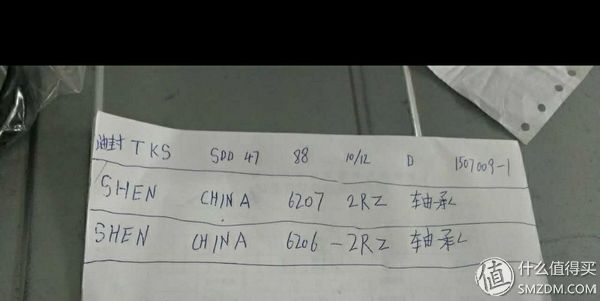 油封 TKS SDD 47 88 10/12 D 1507009-1
SHEN CHINA 6207 2RZ 轴承
SHEN CHINA 6206 -2RZ 轴承
值 什么值得买
SMZDM.COM